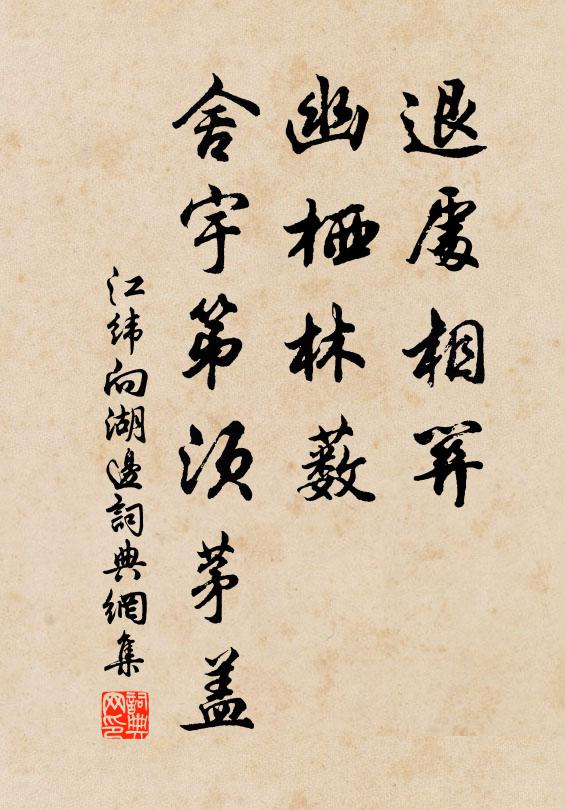 退處相關
幽栖林藪
舍宇第須茅蓋
江緯向湖邊詞典網集
詞典
网印